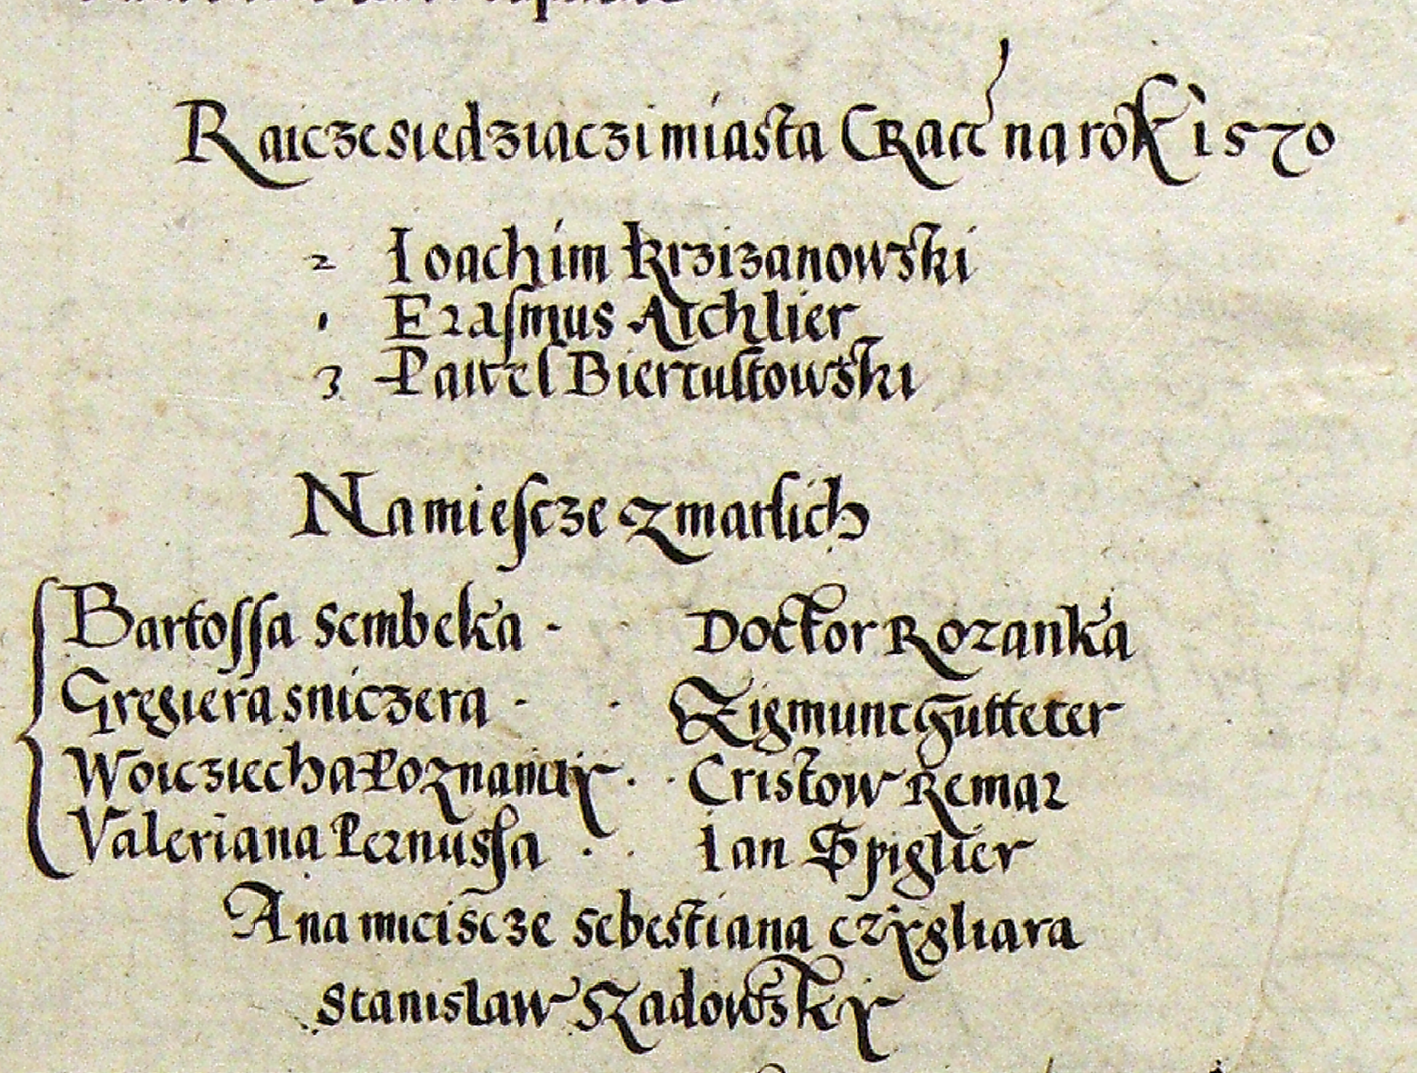 Raicze siedziaczi miasta Crac' na rok 1570
2 Ioachim Krzizanowski
1 Erasmus Aichlier
3 Pawel Biertultowski
Na miescze zmarlich
Bartossa Sembeka - - Doctor Rozanka
Gręgiera sniczera - - Zigmunt Gutteter
Woicziecha Poznanczÿ - - Cristow Remar
Valeriana Pernussa - - Ian Spiglier
A na meiscze Sebestiana czÿgliara
Stanislaw Szadowskÿ